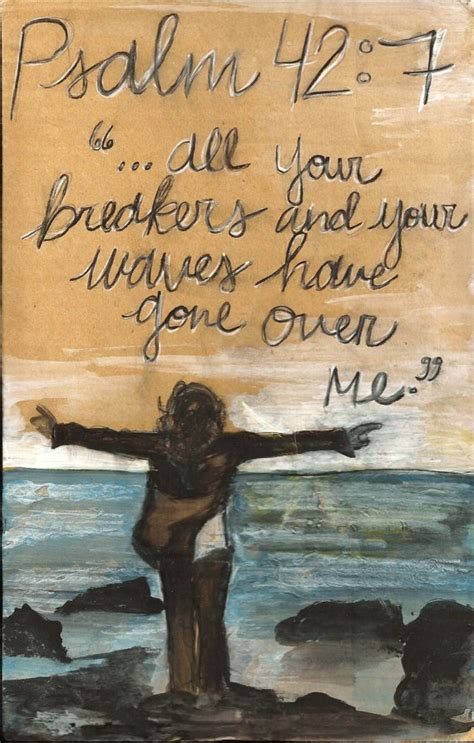 Psalm 42:7
"... all your
breakers and your
waves have
gone over
me."